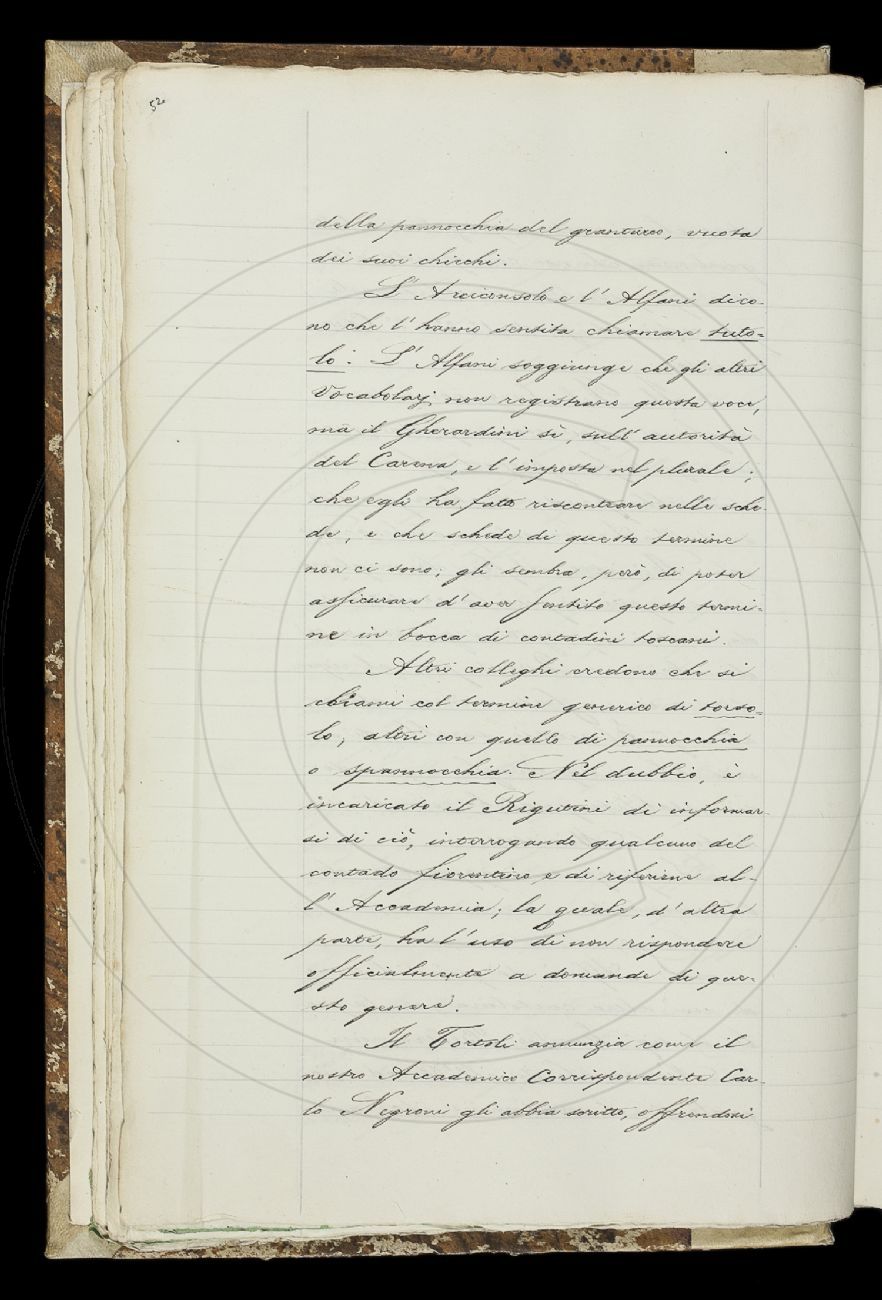 52
della pannocchia del granturco, vuota
dei suoi chicchi.
L'Arciconsolo e l'Alfani dico-
no che l'hanno sentita chiamare tuto-
lo: L'Alfani soggiunge che gli altri
Vocabolarj non registrano questa voce,
ma il Gherardini sì, sull'autorità
del Carena, e l'imposta nel plurale;
che egli ha fatto riscontrare nelle sche-
de, e che schede di questo termine
non ci sono; gli sembra, però, di poter
assicurare d'aver sentito questo termi-
ne in bocca di contadini toscani.
Altri colleghi credono che si
chiami col termine generico di torso-
lo, altri con quello di pannocchia
o spannocchia. Nel dubbio, è
incaricato il Rigutini di informar-
si di ciò, interrogando qualcuno del
contado fiorentino e di riferirne al-
l'Accademia; la quale, d'altra
parte, ha l'uso di non rispondere
officialmente a domande di que-
sto genere.
Il Tortoli annunzia come il
nostro Accademico Corrispondente Car-
lo Negroni gli abbia scritto, offrendosi